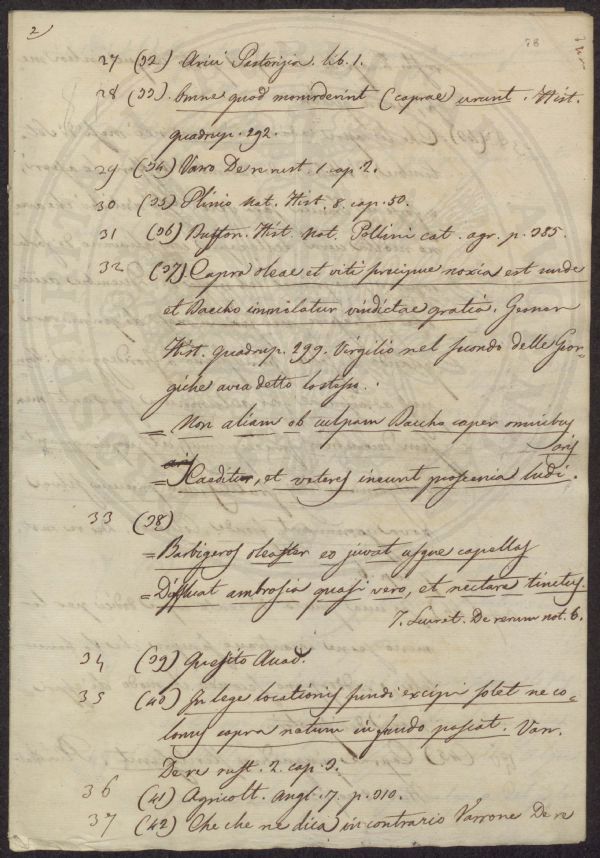 2
78
27 (32) Arici Pastorizia. lib. 1.
28 (33) Omne quod momorderint (caprae) urunt. Hist.
quadrup. 292.
29 (34) Varro De re rust. 1 cap. 2.
30 (35) Plinio Nat. Hist. 8. cap. 50.
31 (36) Buffon. Hist. Nat. Pollini cat. agr. p. 385.
32 (37) Capra oleae et viti precipue noxia est unde
et Baccho immolatur vindictae gratia. Gesner
Hist. quadrup. 299. Virgilio nel secondo delle Geor-
giche avea detto lo stesso.
= Non aliam ob culpam Baccho caper omnibus
aris
= Caeditur, et veteres ineunt proscenia ludi.
33 (38)
= Barbigeras oleaster eo juvat usque capellas
= Diffluat ambrosia quasi vero, et nectare tinctus.
T. Lucret. De rerum nat. 6.
34 (39) Quesito Acad.
35 (40) In lege locationis fundi excipi solet ne co-
lonus capra natum in fundo pascat. Varr.
De re rust. 2. cap. 3.
36 (41) Agricolt. Angl. 7. p. 310.
37 (42) Che che ne dica in contrario Varrone De re